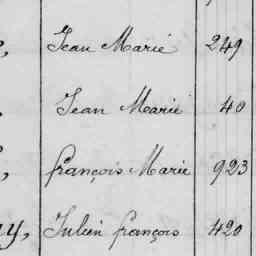 Jean Marie 249
Jean Marie 40
françois Marie 923
Julien françois 420